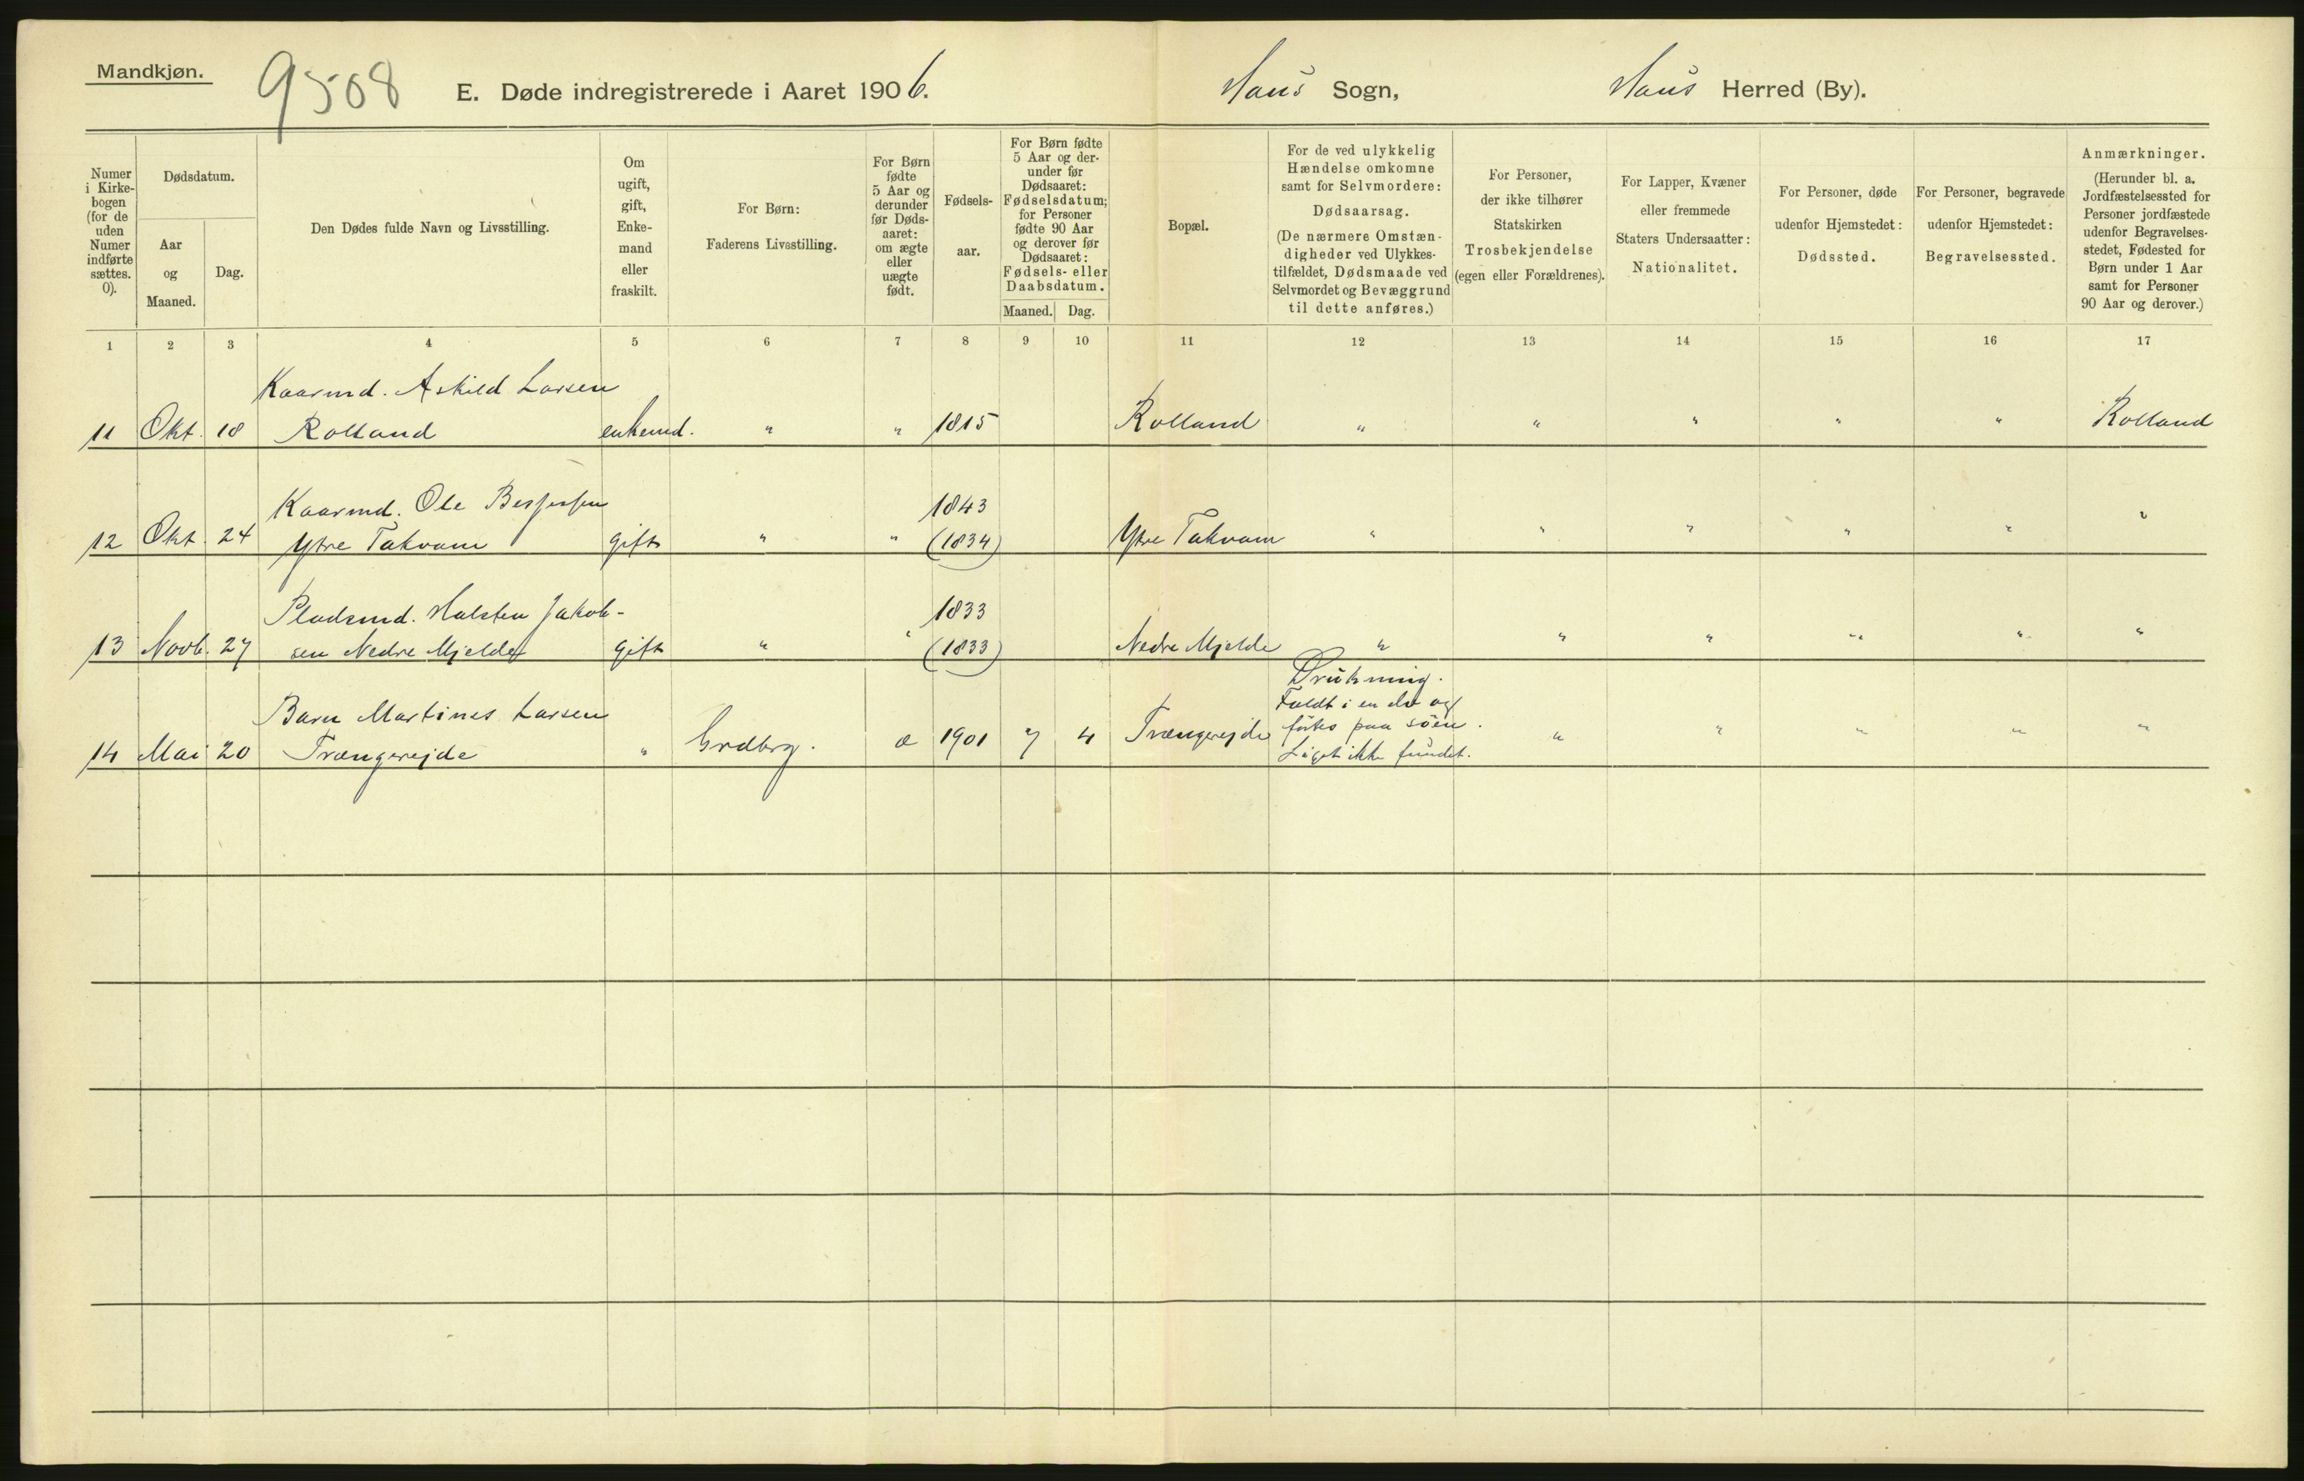 Mandkjøn.
9508
E. Døde indregistrerede i Aaret 1906.
Haus Sogn,
Haus Herred (By).
Numer
i Kirke-
bogen
(for de
uden
Numer
indførte
sættes.
0).
Dødsdatum.
Aar
og
Maaned.
Dag.
Den Dødes fulde Navn og Livsstilling.
Om
ugift,
gift,
Enke-
mand
eller
fraskilt.
For Børn:
Faderens Livsstilling.
For Børn
fødte
5 Aar og
derunder
før Døds-
aaret:
om ægte
eller
uægte
født.
Fødsels-
aar.
For Børn fødte
5 Aar og der-
under før
Dødsaaret:
Fødselsdatum;
for Personer
fødte 90 Aar
og derover før
Dødsaaret:
Fødsels- eller
Daabsdatum.
Maaned. Dag.
Bopæl.
For de ved ulykkelig
Hændelse omkomne
samt for Selvmordere:
Dødsaarsag.
(De nærmere Omstæn-
digheder ved Ulykkes-
tilfældet, Dødsmaade ved
Selvmordet og Bevæggrund
til dette anføres.)
For Personer,
der ikke tilhører
Statskirken
Trosbekjendelse
(egen eller Forældrenes).
For Lapper, Kvæner
eller fremmede
Staters Undersaatter:
Nationalitet.
For Personer, døde
udenfor Hjemstedet:
Dødssted.
For Personer, begravede
udenfor Hjemstedet:
Begravelsessted.
Anmærkninger.
(Herunder bl. a.
Jordfæstelsessted for
Personer jordfæstede
udenfor Begravelses-
stedet, Fødested for
Børn under 1 Aar
samt for Personer
90 Aar og derover.)
1 2 3 4 5 6 7 8 9 10 11 12 13 14 15 16 17
Kaarmd. Askild Larsen
11 Okt. 18 Rolland enkemd. " " 1815 Rolland " " " " " Rolland
Kaarmd. Ole 1843
12 Okt. 24 Ytre Takvam gift " " (1834) Ytre Takvam " " " " " "
Pladsmd. Halsten Jakob- 1833
13 Novb. 27 sen Nedre Mjelde gift " " (1833) Nedre Mjelde " " " " " "
Drukning.
Barn Martines Larsen Faldt i en elv og
førtes paa søen.
14 Mai 20 Trængereide " Grdbrg. æ 1901 7 4 Trængereide Liget ikke fundet. " " " " "